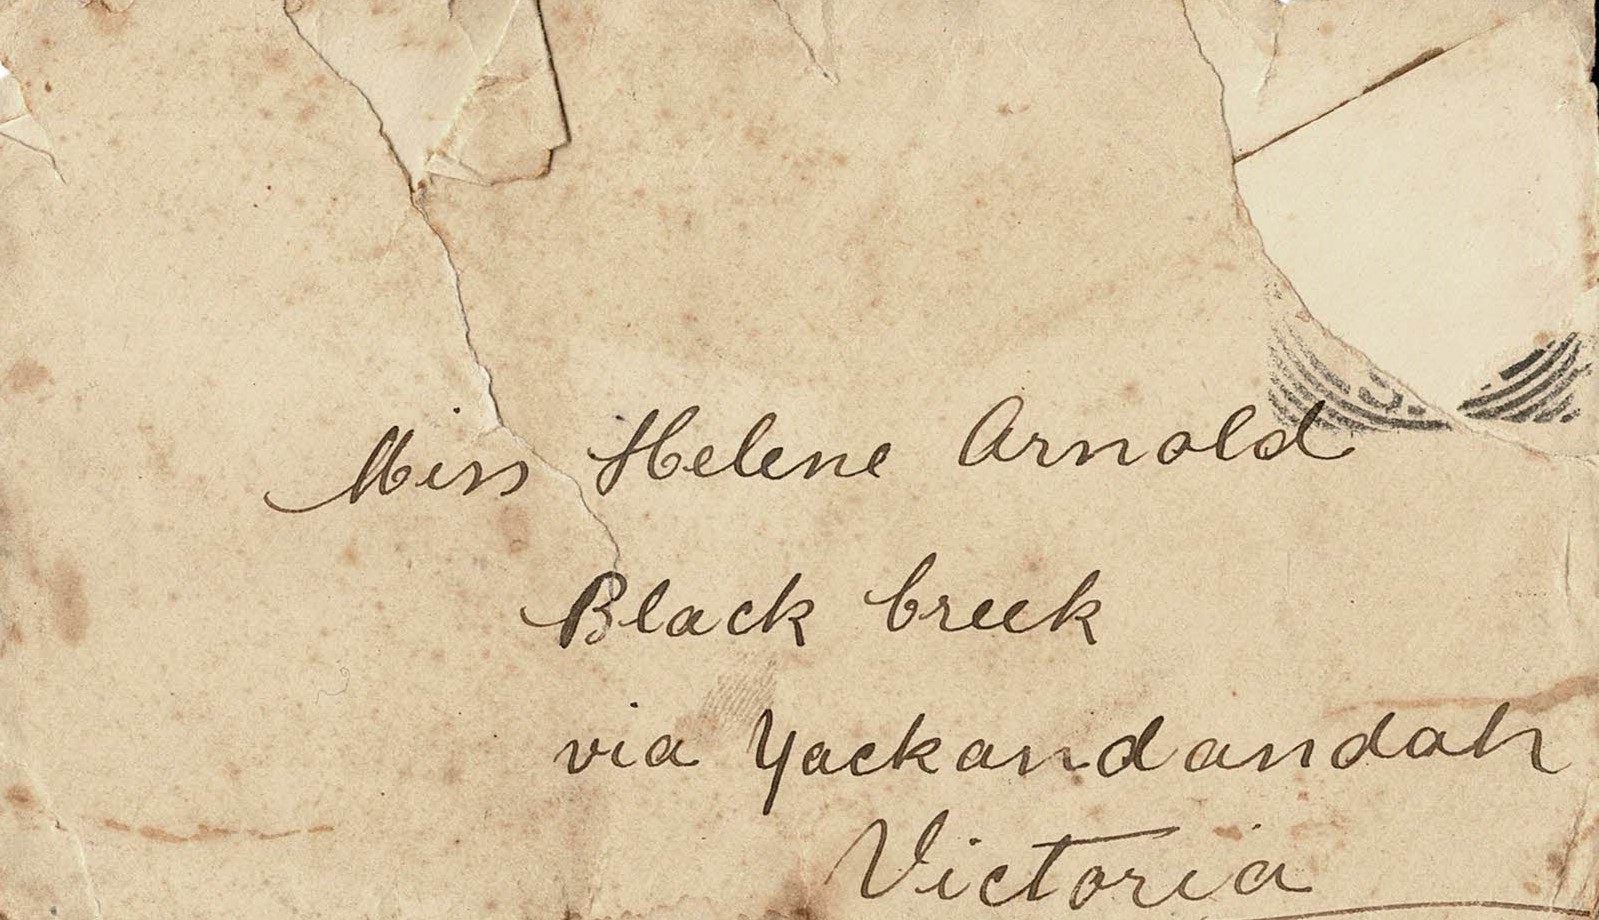 Miss Helene Arnold
Black Creek
via Yackandandah
Victoria